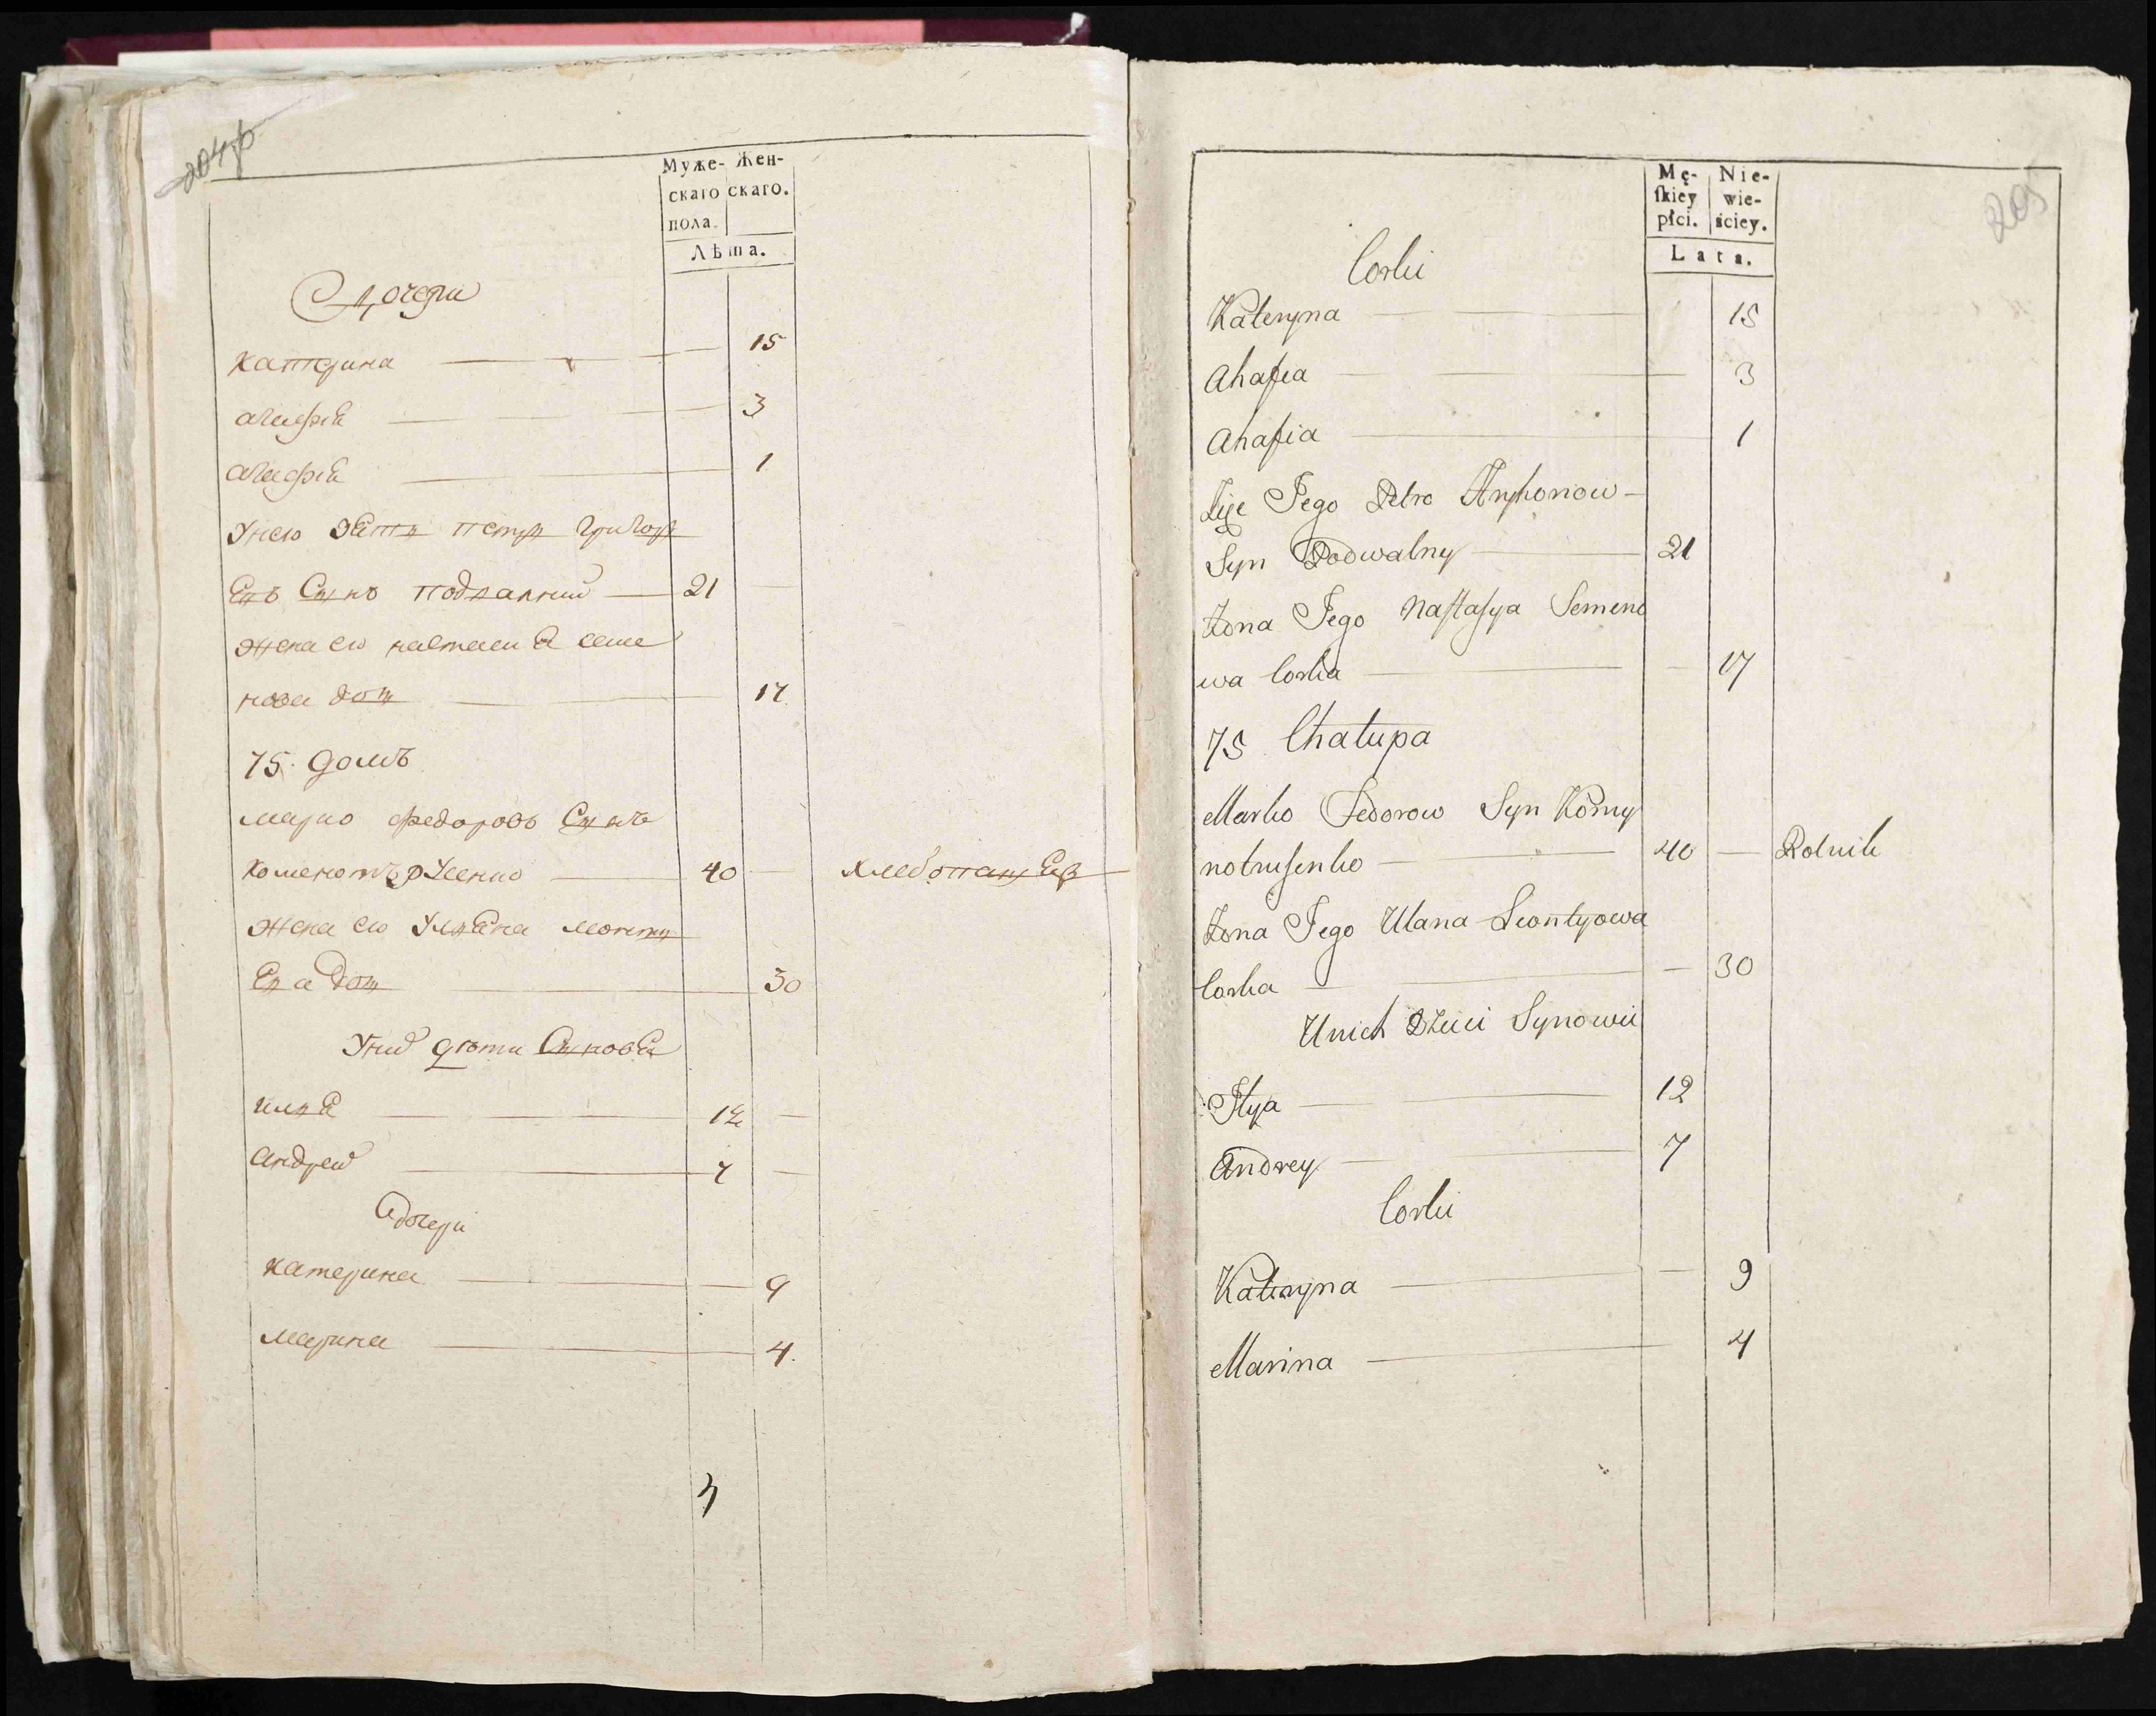 204 об
Муже- Жен-
скаго скаго.
пола.
Лѣта.
Дочери
Катерина 15
агафия 3
агафия 1
У него зять петръ григорь
евъ Сынъ подвалний 21
жена его настасия семе
нова дочь 17
75 Домъ
марко федоровъ Сынъ
Коменотрусенко 40 хлебопашец
жена его Ульяна леонть
ева дочь 30
У них дѣти Сыновья
илья 12
андрей 7
дочери
катерина 9
марина 4
3
205
Mę- Nie-
ſkiey wie-
płci. ściey.
Lata.
Corki
Kateryna 15
Ahafia 3
Ahafia 1
Zięć Jego Petro Hryhorow
Syn Podwalny 21
Zona Jego Naſtaſya Semeno
wa Corka 17
75 Chałupa
Marko Fedorow Syn Komy
notruſenko 40 — Rolnik
Zona Jego Ulana Leontyowa
Corka 30
Unich Dzieci Synowie
Ilya 12
Andrey 7
Corki
Kateryna 9
Marina 4